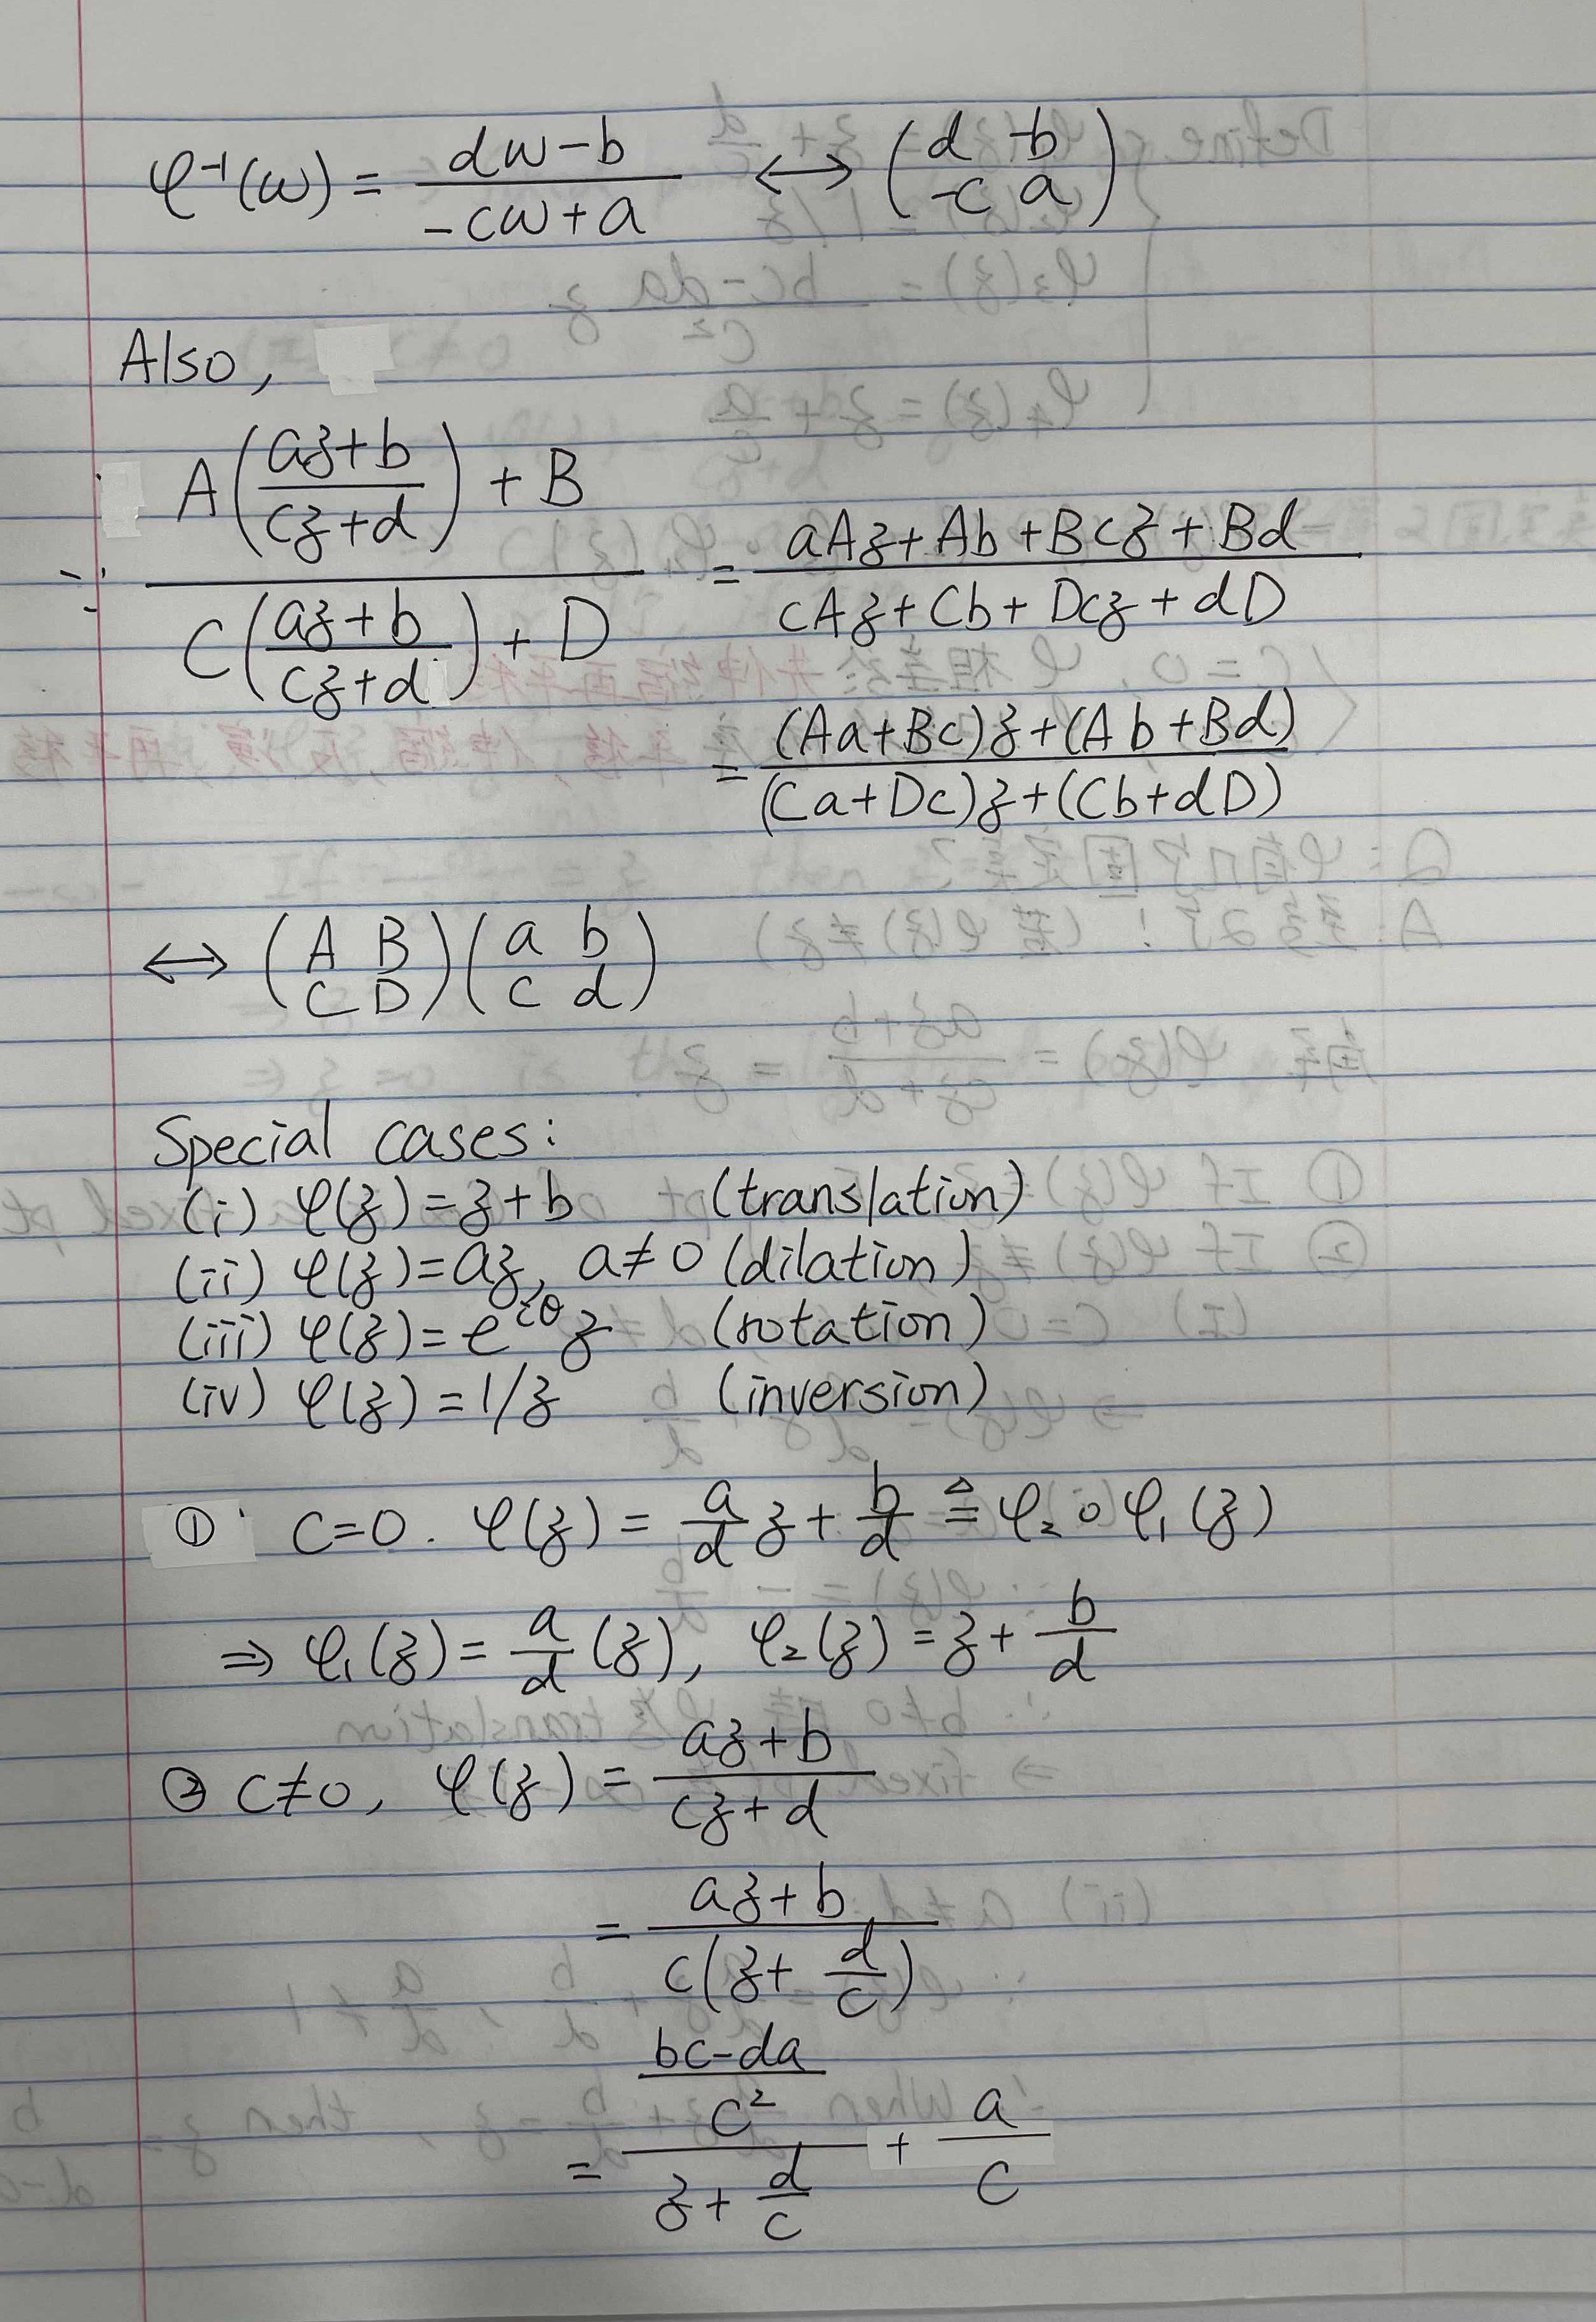 φ⁻¹(ω) = (dω-b)/(-cω+a) ↔ (d -b; -c a)
Also,
∵ (A((az+b)/(cz+d)) + B)/(C((az+b)/(cz+d)) + D) = (aAz+Ab+Bcz+Bd)/(cAz+Cb+Dcz+dD)
= ((Aa+Bc)z+(Ab+Bd))/((Ca+Dc)z+(Cb+dD))
↔ (A B; C D)(a b; c d)
Special cases:
(i) φ(z)=z+b (translation)
(ii) φ(z)=az, a≠0 (dilation)
(iii) φ(z)=e^{iθ}z (rotation)
(iv) φ(z)=1/z (inversion)
① C=0. φ(z) = a/d z + b/d ≜ φ₂∘φ₁(z)
⇒ φ₁(z) = a/d (z), φ₂(z) = z + b/d
② C≠0, φ(z) = (az+b)/(cz+d)
= (az+b)/(c(z+ d/c))
= ((bc-da)/c²)/(z+ d/c) + a/c